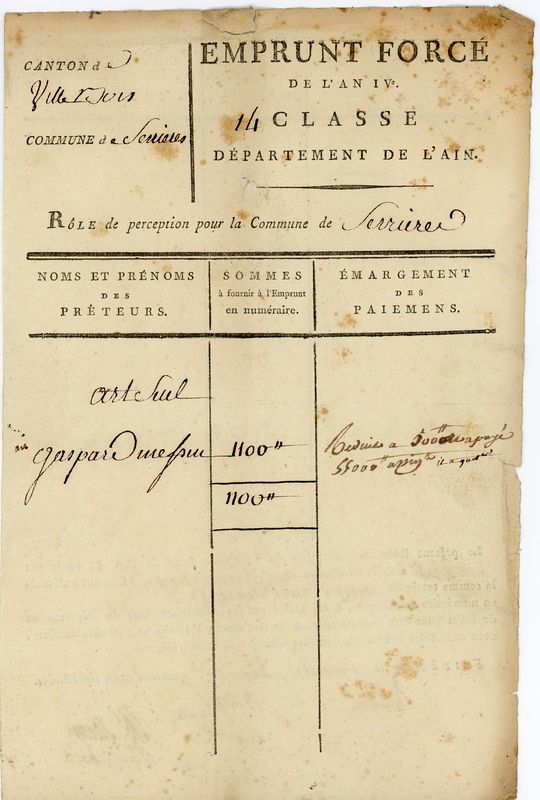 CANTON d e
Villebois
COMMUNE de Serrieres
EMPRUNT FORCÉ
DE L'AN IVe.
14 CLASSE
DÉPARTEMENT DE L'AIN.
RÔLE de perception pour la Commune de Serrieres
NOMS ET PRÉNOMS
DES
PRÊTEURS.
SOMMES
à fournir à l'Emprunt
en numéraire.
ÉMARGEMENT
DES
PAIEMENS.
art seul
gaspard 1100 "
Reduite a 500 a payé
55000
1100 "